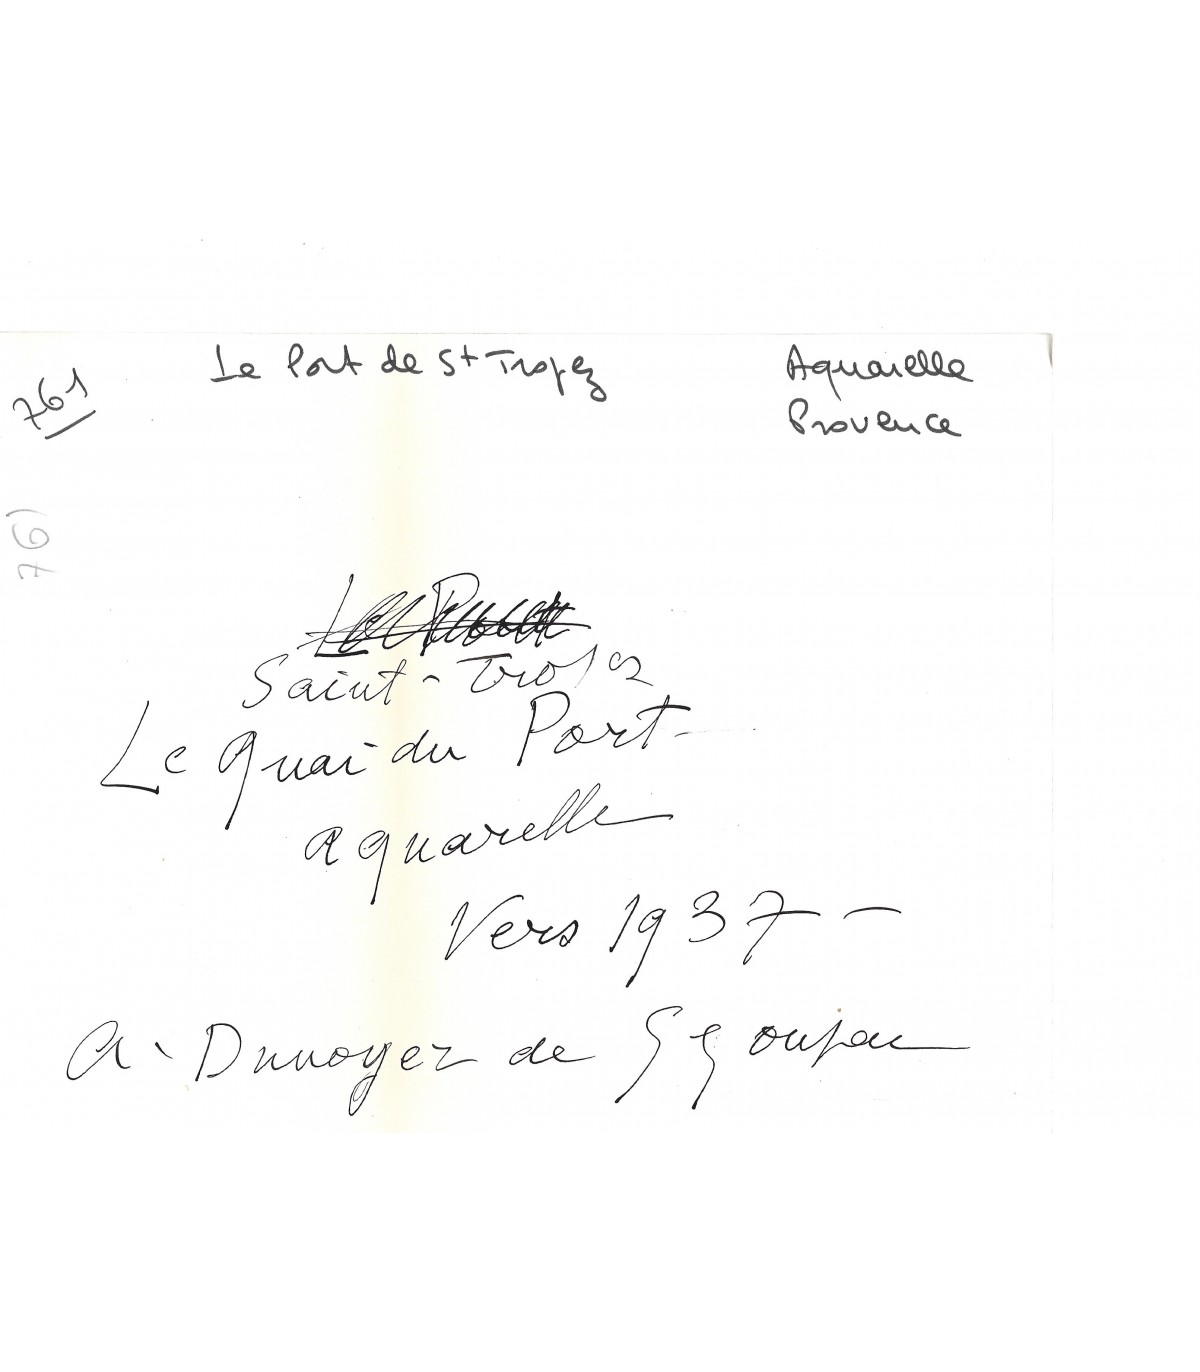 761
Le Port de St Tropez
Aquarelle
Provence
761
Saint-Tropez
Le quai du Port-
aquarelle
Vers 1937 -
A. Dunoyer de Segonzac